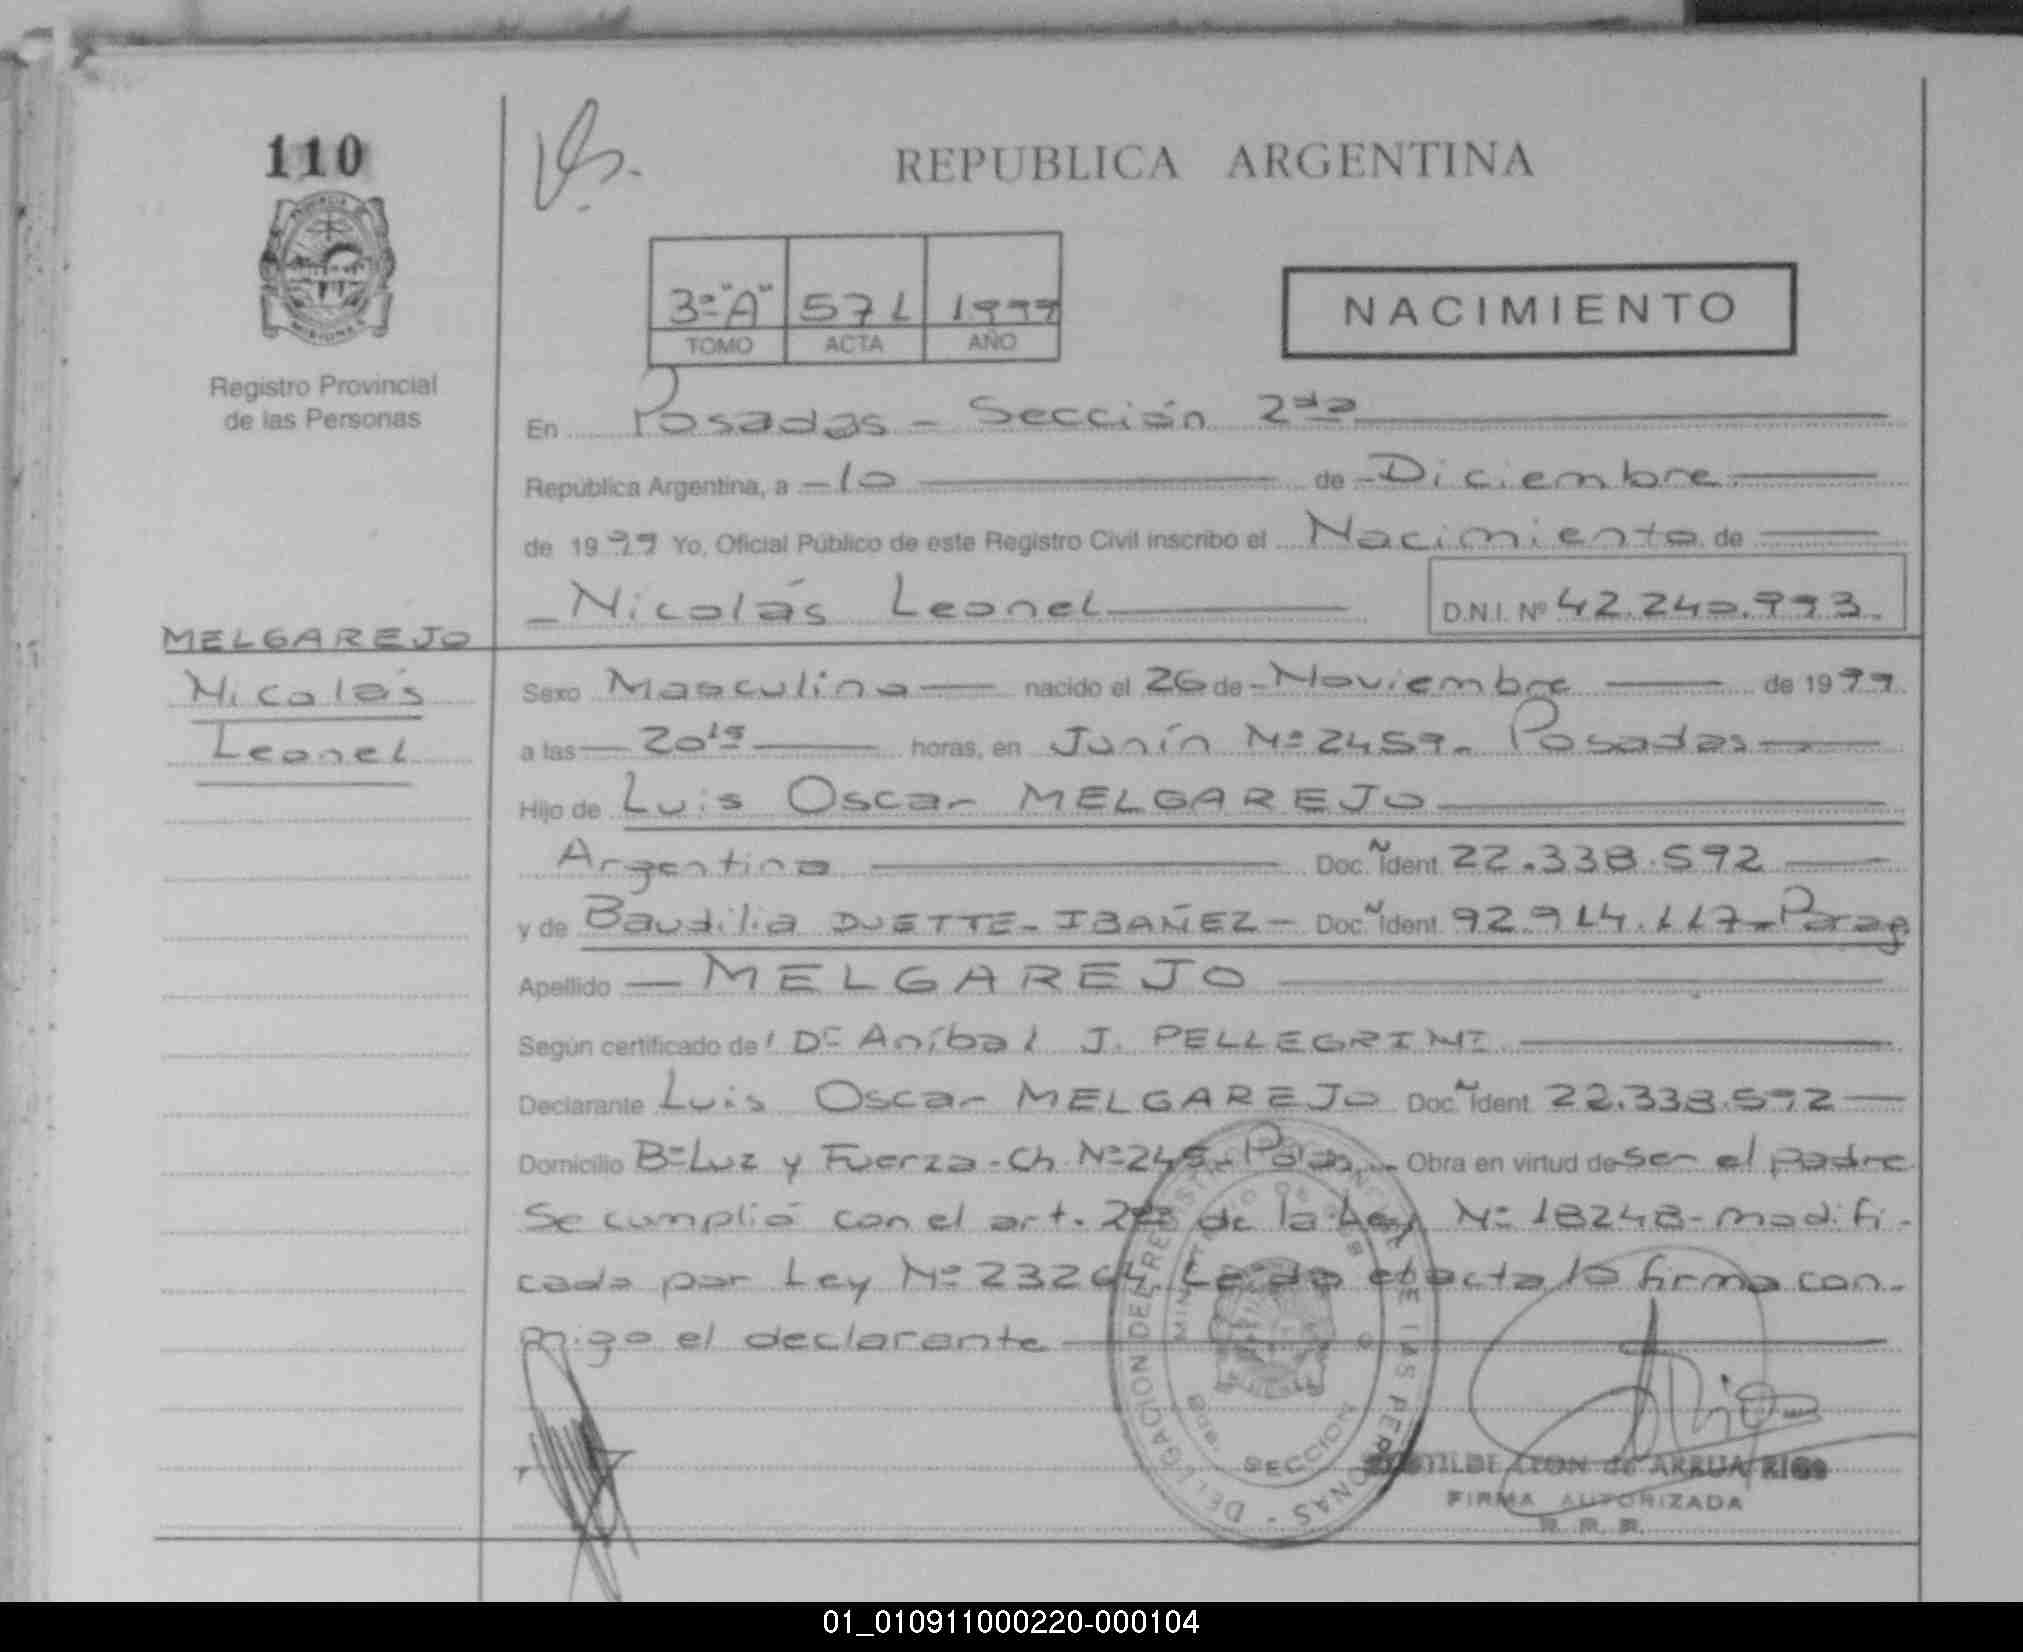 110
REPUBLICA ARGENTINA
3º "A" 571 1999
TOMO ACTA AÑO
NACIMIENTO
Registro Provincial
de las Personas
En Posadas - Sección 2da
República Argentina, a -10 de -Diciembre
de 1999 Yo, Oficial Público de este Registro Civil inscribo el Nacimiento de
- Nicolás Leonel D.N.I. Nº 42.240.993.
MELGAREJO
Nicolás
Leonel
Sexo Masculino nacido el 26 de - Noviembre de 1999.
a las 20 15 horas, en Junín Nº 2459. Posadas
Hijo de Luis Oscar MELGAREJO
Argentino Doc. Ident. 22.338.592
y de Baudilia DUETTE - IBAÑEZ - Doc. Ident. 92.914.117 - Parag
Apellido - MELGAREJO
Según certificado de Dr Aníbal J. PELLEGRINI
Declarante Luis Oscar MELGAREJO Doc. Ident. 22.338.592
Domicilio Bº Luz y Fuerza - Ch Nº 245 - Obra en virtud de ser el padre
Se cumplió con el art. 2do de la Ley Nº 18248 - modifi-
cado por Ley Nº 23264. Leída el acta la firma con-
migo el declarante
DELEGACION DEL REGISTRO PROVINCIAL DE LAS PERSONAS
SECCION
LEON de ARRUA RIOS
FIRMA AUTORIZADA
01_010911000220-000104